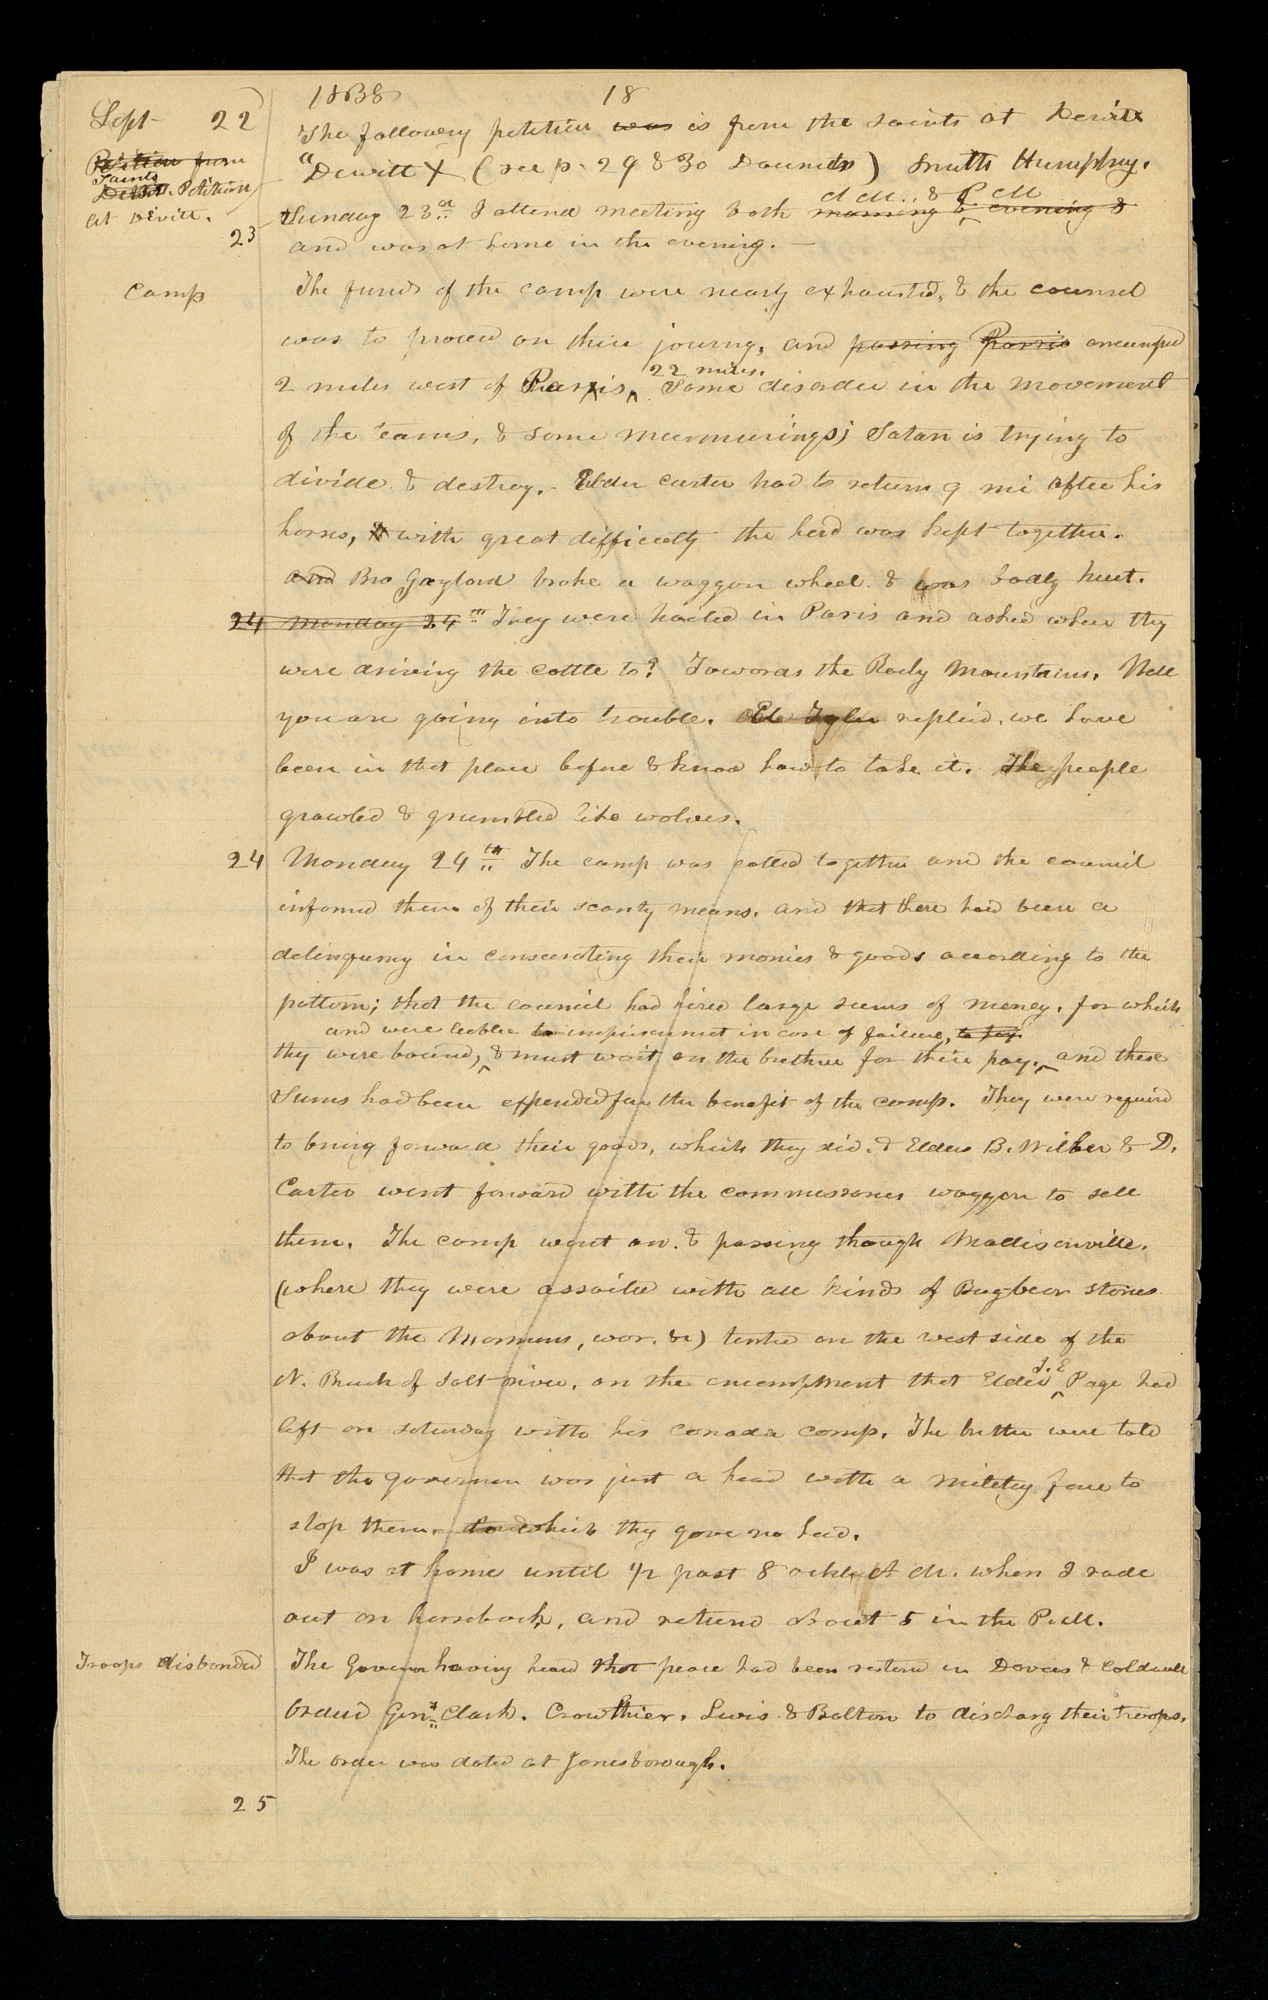 1838 18
Sept 22
The following petition was is from the saints at Dewitt
Petition from
Saints
Dewitt. Petition
at Dewitt.
"Dewitt X (see p. 29 & 30 Documts) Smith Humphrey.
A M. & P. M
Sunday 23d I attend meeting both morning & evening &
23
and was at home in the evening. —
Camp
The funds of the camp were nearly exhausted, & the counsel
was to proceed on thier journey, and passing Parris encamped
22 miles.
2 miles west of Parris. Some disorder in the movement
of the teams, & some murmurings; Satan is trying to
divide & destroy. - Elder Carter had to return 9 mi after his
horses, & with great difficulty the herd was kept together.
and Bro Gaylord broke a waggon wheel & was badly hurt.
24 Monday 24th They were hailed in Paris and asked where they
were driving the cattle to? Towards the Rocky Mountains. Well
you are going into trouble. El Tyler replied, we have
been in that place before & know how to take it. The people
growled & grumbled like wolves.
24 Monday 24th The camp was called together and the council
informed them of their scanty means. and that there had been a
delinquency in consecrating their monies & goods according to the
pattern; that the council had hired large sums of money, for which
and were liable to imprisonment in case of failure, to pay
they were bound, & must wait on the brethren for their pay. and these
sums had been expended for the benefit of the camp. They were required
to bring forward their goods, which they did. & Elders B. Wilber & D.
Carter went forward with the commissaries waggon to sell
them. The camp went on. & passing though Madisonville.
(where they were assailed with all kinds of Bugbear stories
about the Mormons, war. &c) tented on the west side of the
J. E
N. Branch of Salt river, on the encampment that Elder Page had
left on saturday with his canada camp. The brethen were told
that the governor was just a head with a military force to
stop them. to which they gave no heed.
I was at home until 1/2 past 8 oclk A M. when I rode
out on horseback, and returnd about 5 in the P.M.
Troops disbanded
The Governor having heard that peace had been restored in Davies & Coldwell
orderd Genls Clark. Crowthier. Lewis & Bolton to discharg their troops.
The order was dated at Jonesborough.
25